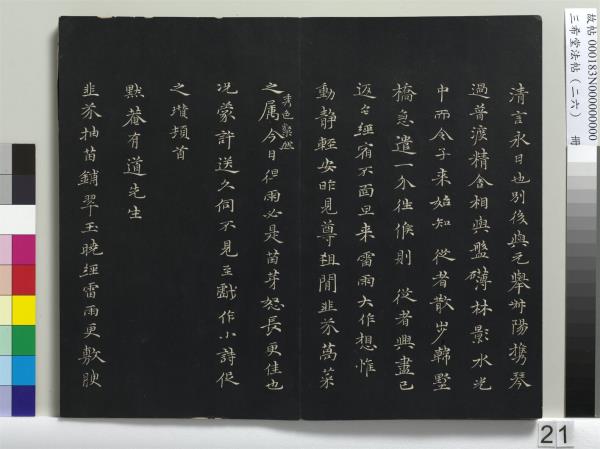 故帖 000183N000000000
三希堂法帖（二六） 冊
清言永日也別後與元舉 陽攜琴
過普濟精舍相與盤礴林影水光
中而令子来始知 從者散步韓墅
橋急遣一介往候則 從者興盡已
返 經宿不面旦来雷雨大作想惟
動靜輕安昨見尊俎閒韭芥萵菜
之属秀色粲然今日得雨必是苗芽怒長更佳也
况蒙許送久伺不見至戲作小詩促
之墳頓首
默菴有道先生
韭芥抽苗鋪翠玉曉經雷雨更敷腴
21